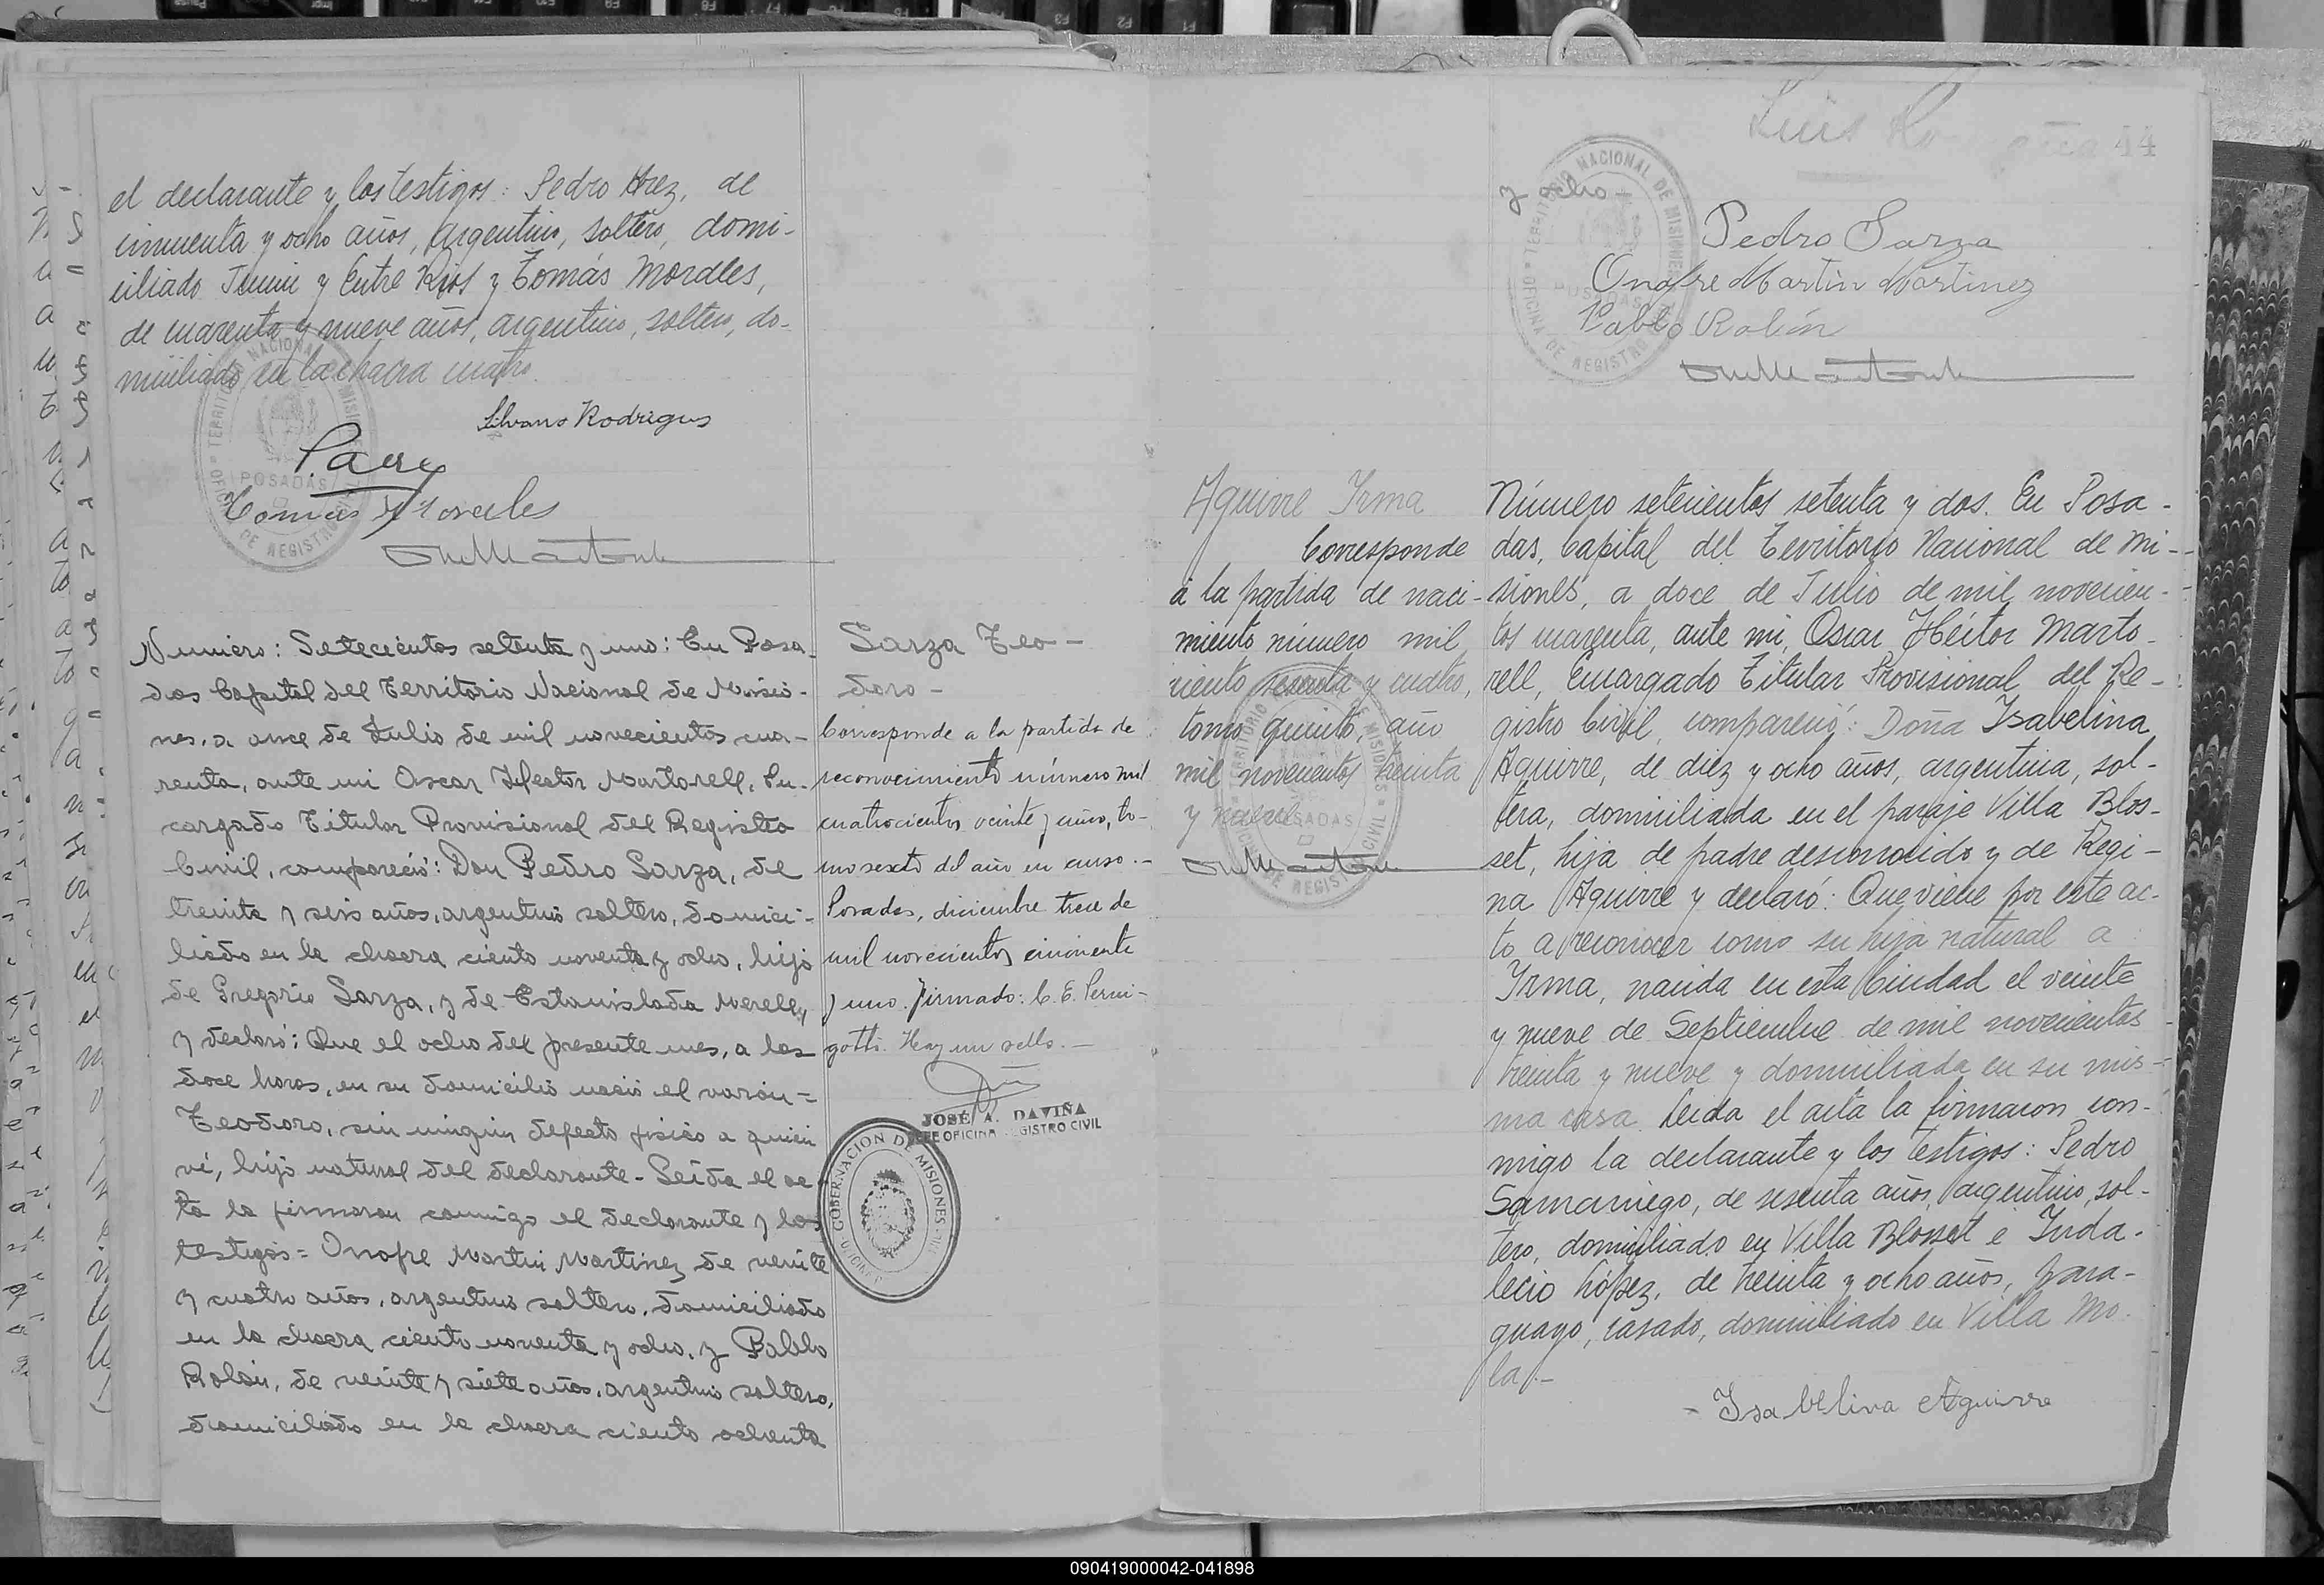 el declarante y los testigos: Pedro Arez, de
cincuenta y ocho años, argentino, soltero, domi-
ciliado Junin y Entre Rios y Tomás Morales,
de cuarenta y nueve años, argentino, soltero, do-
miciliado en la chacra cuatro.
Silvano Rodrigues
Tomas Morales
TERRITORIO NACIONAL DE MISIONES
POSADAS
OFICINA DE REGISTRO CIVIL
Numero: Setecientos setenta y uno: En Posa-
das Capital del Territorio Nacional de Misio-
nes, a once de Julio de mil novecientos cua-
renta, ante mi Oscar Hector Martorell, En-
cargado Titular Provisional del Registro
Civil, compareció: Don Pedro Sarza, de
treinta y seis años, argentino soltero, domici-
liado en la chacra ciento noventa y ocho, hijo
de Gregorio Sarza, y de Estanislada Merelly
y declaró: Que el ocho del presente mes, a las
doce horas, en su domicilio nació el varón=
Teodoro, sin ningún defecto fisico a quien
ví, hijo natural del declarante- Leida el ac-
ta la firmaron conmigo el declarante y los
testigos= Onofre Martin Martinez de veinte
y cuatro años, argentino soltero, domiciliado
en la chacra ciento noventa y ocho, y Pablo
Rolón, de veinte y siete años, argentino soltero,
domiciliado en la chacra ciento ochenta
Sarza Teo-
doro-
Corresponde a la partida de
reconocimiento número mil
cuatrocientos veinte y uno, to-
mo sexto del año en curso.-
Posadas, diciembre trece de
mil novecientos cincuenta
y uno. firmado: C. E. Perni-
gotti. Hay un sello.-
JOSÉ A. DAVIÑA
JEFE OFICINA REGISTRO CIVIL
GOBERNACION DE MISIONES
Luis
44
y ocho-
Pedro Sarza
Onofre Martin Martinez
Pablo Rolón
TERRITORIO NACIONAL DE MISIONES
POSADAS
OFICINA DE REGISTRO
Aguirre Irma
Corresponde
a la partida de naci-
miento número mil
ciento sesenta y cuatro,
tomo quinto, año
mil novecientos treinta
y nueve
TERRITORIO DE MISIONES
POSADAS
DE REGISTRO CIVIL
Número setecientos setenta y dos. En Posa-
das, Capital del Territorio Nacional de Mi-
siones, a doce de Julio de mil novecien-
tos cuarenta, ante mi, Oscar Héctor Marto-
rell, Encargado Titular Provisional del Re-
gistro Civil, compareció: Doña Isabelina
Aguirre, de diez y ocho años, argentina, sol-
tera, domiciliada en el paraje Villa Blos-
set, hija de padre desconocido y de Regi-
na Aguirre y declaró: Que viene por este ac-
to a reconocer como su hija natural a
Irma, nacida en esta Ciudad el veinte
y nueve de Septiembre de mil novecientos
treinta y nueve y domiciliada en su mis-
ma casa. Leida el acta la firmaron con-
migo la declarante y los testigos: Pedro
Samaniego, de sesenta años, argentino, sol-
tero, domiciliado en Villa Blosset e Inda-
lecio López, de treinta y ocho años, para-
guayo, casado, domiciliado en Villa Mo-
la.-
- Isabelina Aguirre
090419000042-041898